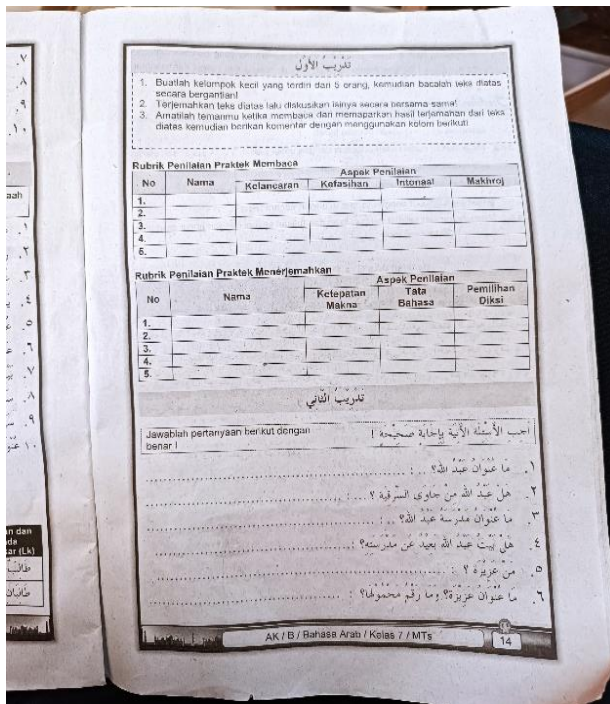 ٧.
٨.
٩.
١٠.
تَدْرِيْبُ الأَوَّلُ
1. Buatlah kelompok kecil yang terdiri dari 5 orang, kemudian bacalah teks diatas
secara bergantian!
2. Terjemahkan teks diatas lalu diskusikan isinya secara bersama sama!
3. Amatilah temanmu ketika membaca dan memaparkan hasil terjemahan dari teks
diatas kemudian berikan komentar dengan menggunakan kolom berikut!
Rubrik Penilaian Praktek Membaca
No Nama Aspek Penilaian
Kelancaran Kefasihan Intonasi Makhroj
1.
2.
3.
4.
5.
Rubrik Penilaian Praktek Menerjemahkan
No Nama Aspek Penilaian
Ketepatan Makna Tata Bahasa Pemilihan Diksi
1.
2.
3.
4.
5.
تَدْرِيْبُ الثَّانِي
Jawablah pertanyaan berikut dengan
benar !
أجب الأَسْئِلَة الأَتِيَة بِإِجَابَة صَحِيْحَة !
١. مَا عُنْوَانُ عَبْدُ الله؟ :
٢. هَلْ عَبْدُ الله مِنْ جاوى السَّرقية ؟ :
٣. مَا عُنْوَانُ مَدْرَسَة عَبْدُ الله؟ :
٤. هَلْ بَيْتُ عَبْدُ الله بَعِيْدٌ عَن مَدْرَسَتِه؟ :
٥. مَنْ عَزِيْزَة ؟ :
٦. مَا عُنْوَانُ عَزِيْزَة؟ وما رَقْمُ مَحْمُوْلهَا؟ :
AK / B / Bahasa Arab / Kelas 7 / MTs
14